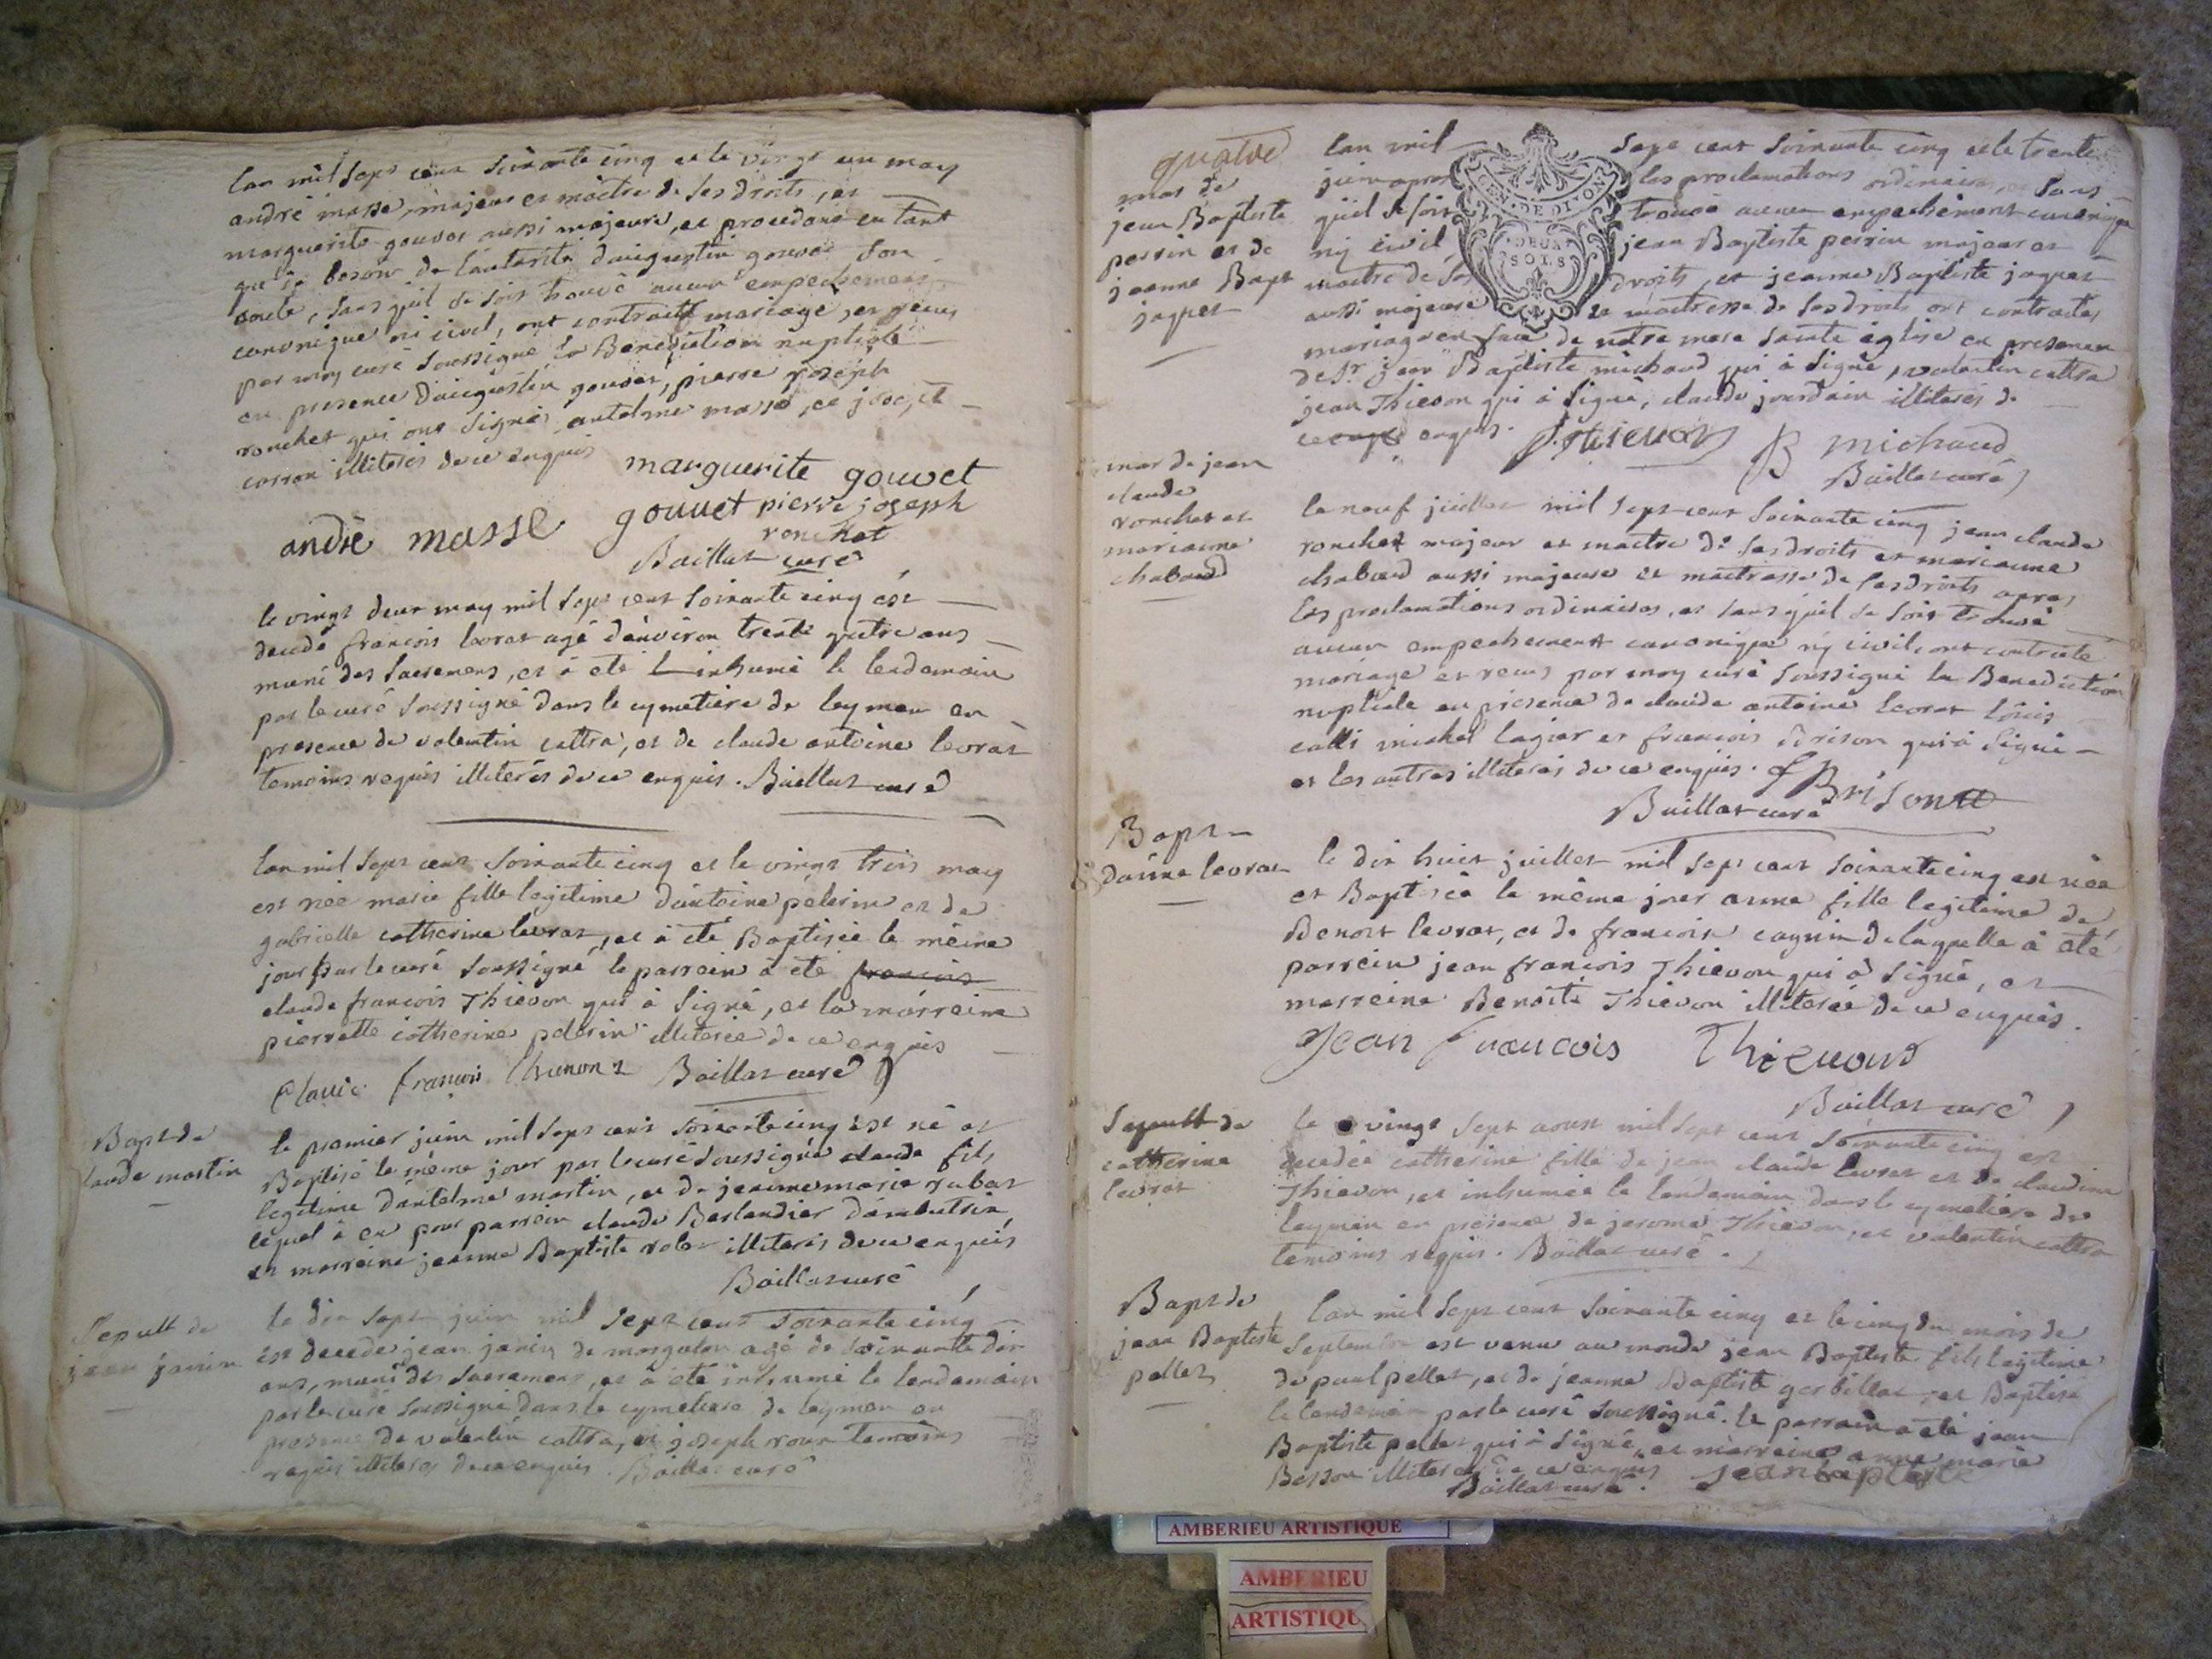 lan mil sept cent soixante cinq et le vingt un may
andré masse, majeur et maitre de ses droits, et
marguerite gouvet aussi majeure, et procedant en tant
que de besoin de lautorité daugustin gouvet son
oncle, sans quil se soit trouvé aucun empechement
canonique ni civil, ont contracté mariage, et recus
par moy curé soussigné la Benediction nuptiale
en presence daugustin gouvet, pierre joseph
ronchet qui ont signés antelme masse, et
illiterés de ce enquis
marguerite gouvet
gouuet pierre joseph
andrè masse
ronchet
Baillat curé
le vingt deux may mil sept cent soixante cinq est
decedé francois levrat agé denviron trente quatre ans
muni des sacremens, et à eté inhumé le lendemain
par le curé soussigné dans le cymetiere de leymen en
presence de valentin cattra, et de claude antoine levrat
temoins requis illiterés de ce enquis. Baillat curé
lan mil sept cent soixante cinq et le vingt trois may
est née marie fille legitime dantoine pelerin et de
gabrielle catherine levrat, et à eté Baptisée le même
jour par le curé soussigné le parrein à eté francois
claude francois Thievon qui à signé, et la marreine
pierrette catherine pelerin illiterée de ce enquis
francois Baillat curé
Bapt de
laude martin
le premier juin mil sept cent soixante cinq est né et
Baptisé le même jour par le curé soussigné claude fils
legitime dantelme martin, et de jeanne marie rubat
lequel à eu pour parrein claude Berlandier dambutrix
et marreine jeanne Baptiste illiterés de ce enquis
Baillat curé
Sepult de
jean janin
le dix sept juin mil sept cent soixante cinq
est decedé jean janin de agé de soixante dix
ans, muni des sacremens, et à eté inhumé le lendemain
par le curé soussigné dans le cymetiere de leymen en
presence de valentin cattra, et joseph roux temoins
requis illiterés de ce enquis. Baillat curé
quatre
mar de
jean Baptiste
perrin et de
jeanne Bapt
jaquet
GEN. DE DIJON
DEUX
SOLS
lan mil sept cent soixante cinq et le trente
juin apres les proclamations ordinaires, et sans
quil se soit trouvé aucun empechement canonique
ny civil jean Baptiste perrin majeur et
maitre de ses droits, et jeanne Baptiste jaquet
aussi majeure et maitresse de ses droits ont contracté
mariage en face de notre mere sainte église en presence
de sr jean Baptiste michaud qui à signé, valentin cattra
jean Thievon qui à signé, claude jourdain illiterés de
ce enquis. J. thievon JB michaud
Baillat curé
mar de jean
claude
ronchet et
marianne
chaboud
le neuf juillet mil sept cent soixante cinq jean claude
ronchet majeur et maitre de ses droits et marianne
chaboud aussi majeure et maitresse de ses droits apres
les proclamations ordinaires, et sans quil se soit trouvé
aucun empechement canonique ny civil, ont contracté
mariage et recus par moy curé soussigné la Benediction
nuptiale en presence de claude antoine levrat louis
michel lagier et francois Brison qui à signé
et les autres illiterés de ce enquis. f Brison
Baillat curé
Bapt
danne levrat
le dix huit juillet mil sept cent soixante cinq est née
et Baptisée le même jour anne fille legitime de
Benoit levrat, et de francoise de laquelle à eté
parrein jean francois Thievon qui à signé, et
marreine Benoite Thievon illiterée de ce enquis.
Jean francois Thievond
Baillat curé
Sepult de
catherine
levrat
le vingt sept aoust mil sept cent soixante cinq est
decedée catherine fille de jean claude levrat et de claudine
Thievon, et inhumée le lendemain dans le cymetiere de
leymen en presence de jerome Thievon, et valentin cattra
temoins requis. Baillat curé.
Bapt de
jean Baptiste
pellet
lan mil sept cent soixante cinq et le cinq du mois de
septembre est venu au monde jean Baptiste fils legitime
de paul pellet, et de jeanne Baptiste gerbillat, et Baptisé
le lendemain par le curé soussigné. le parrain à eté jean
Baptiste pellet qui à signé, et marreine anne marie
Besson illiterée de ce enquis jean baptiste
Baillat curé.
AMBERIEU ARTISTIQUE
AMBERIEU
ARTISTIQU